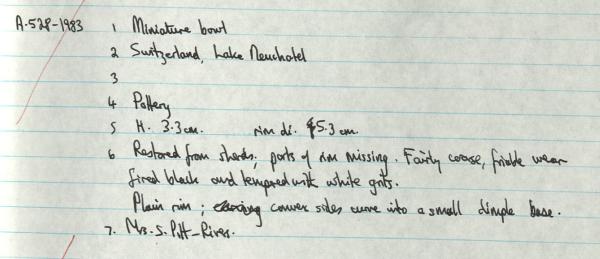 A.528-1983 1 Miniature bowl
2 Switzerland, Lake Neuchatel
3
4 Pottery
5 H. 3.3 cm. rim di. 5.3 cm.
6 Restored from sherds; parts of rim missing. Fairly coarse, friable wear
fired black and tempered with white grits.
Plain rim; convex sides curve into a small dimple base.
7. Mrs. S. Pitt-Rivers.